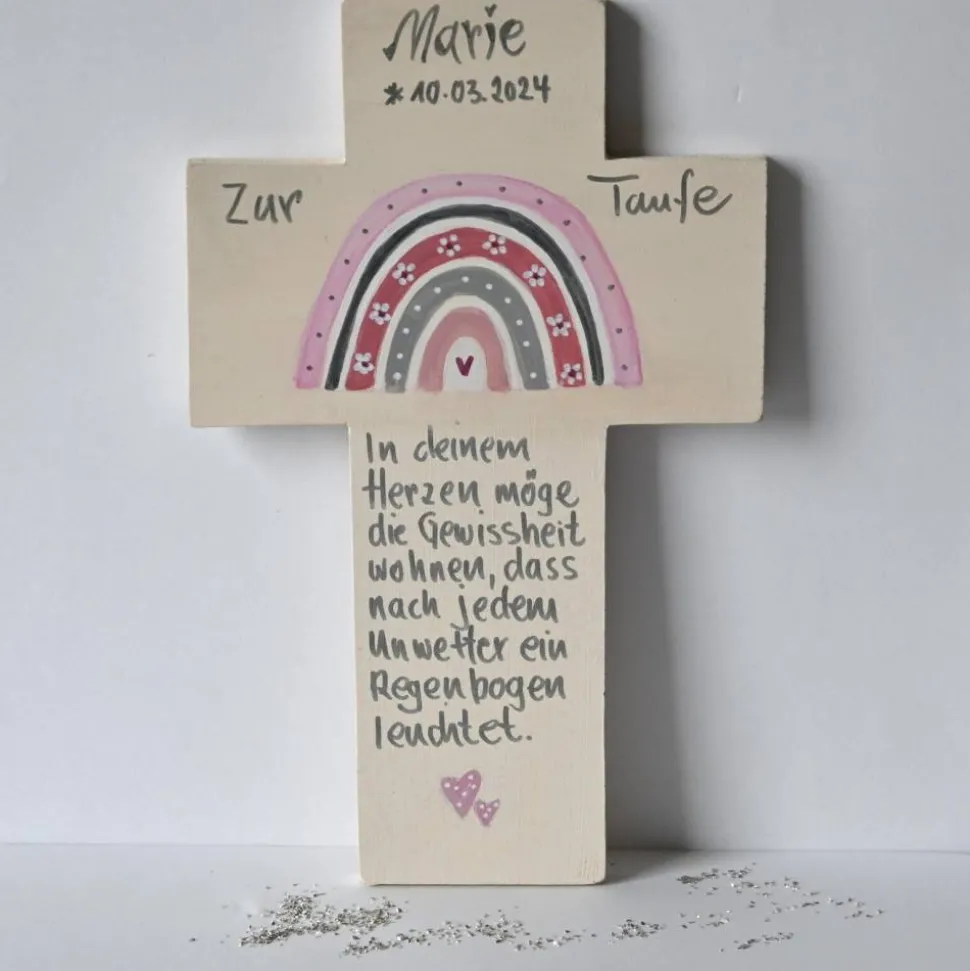 Marie
* 10.03.2024
Zur Taufe
In deinem
Herzen möge
die Gewissheit
wohnen, dass
nach jedem
Unwetter ein
Regenbogen
leuchtet.